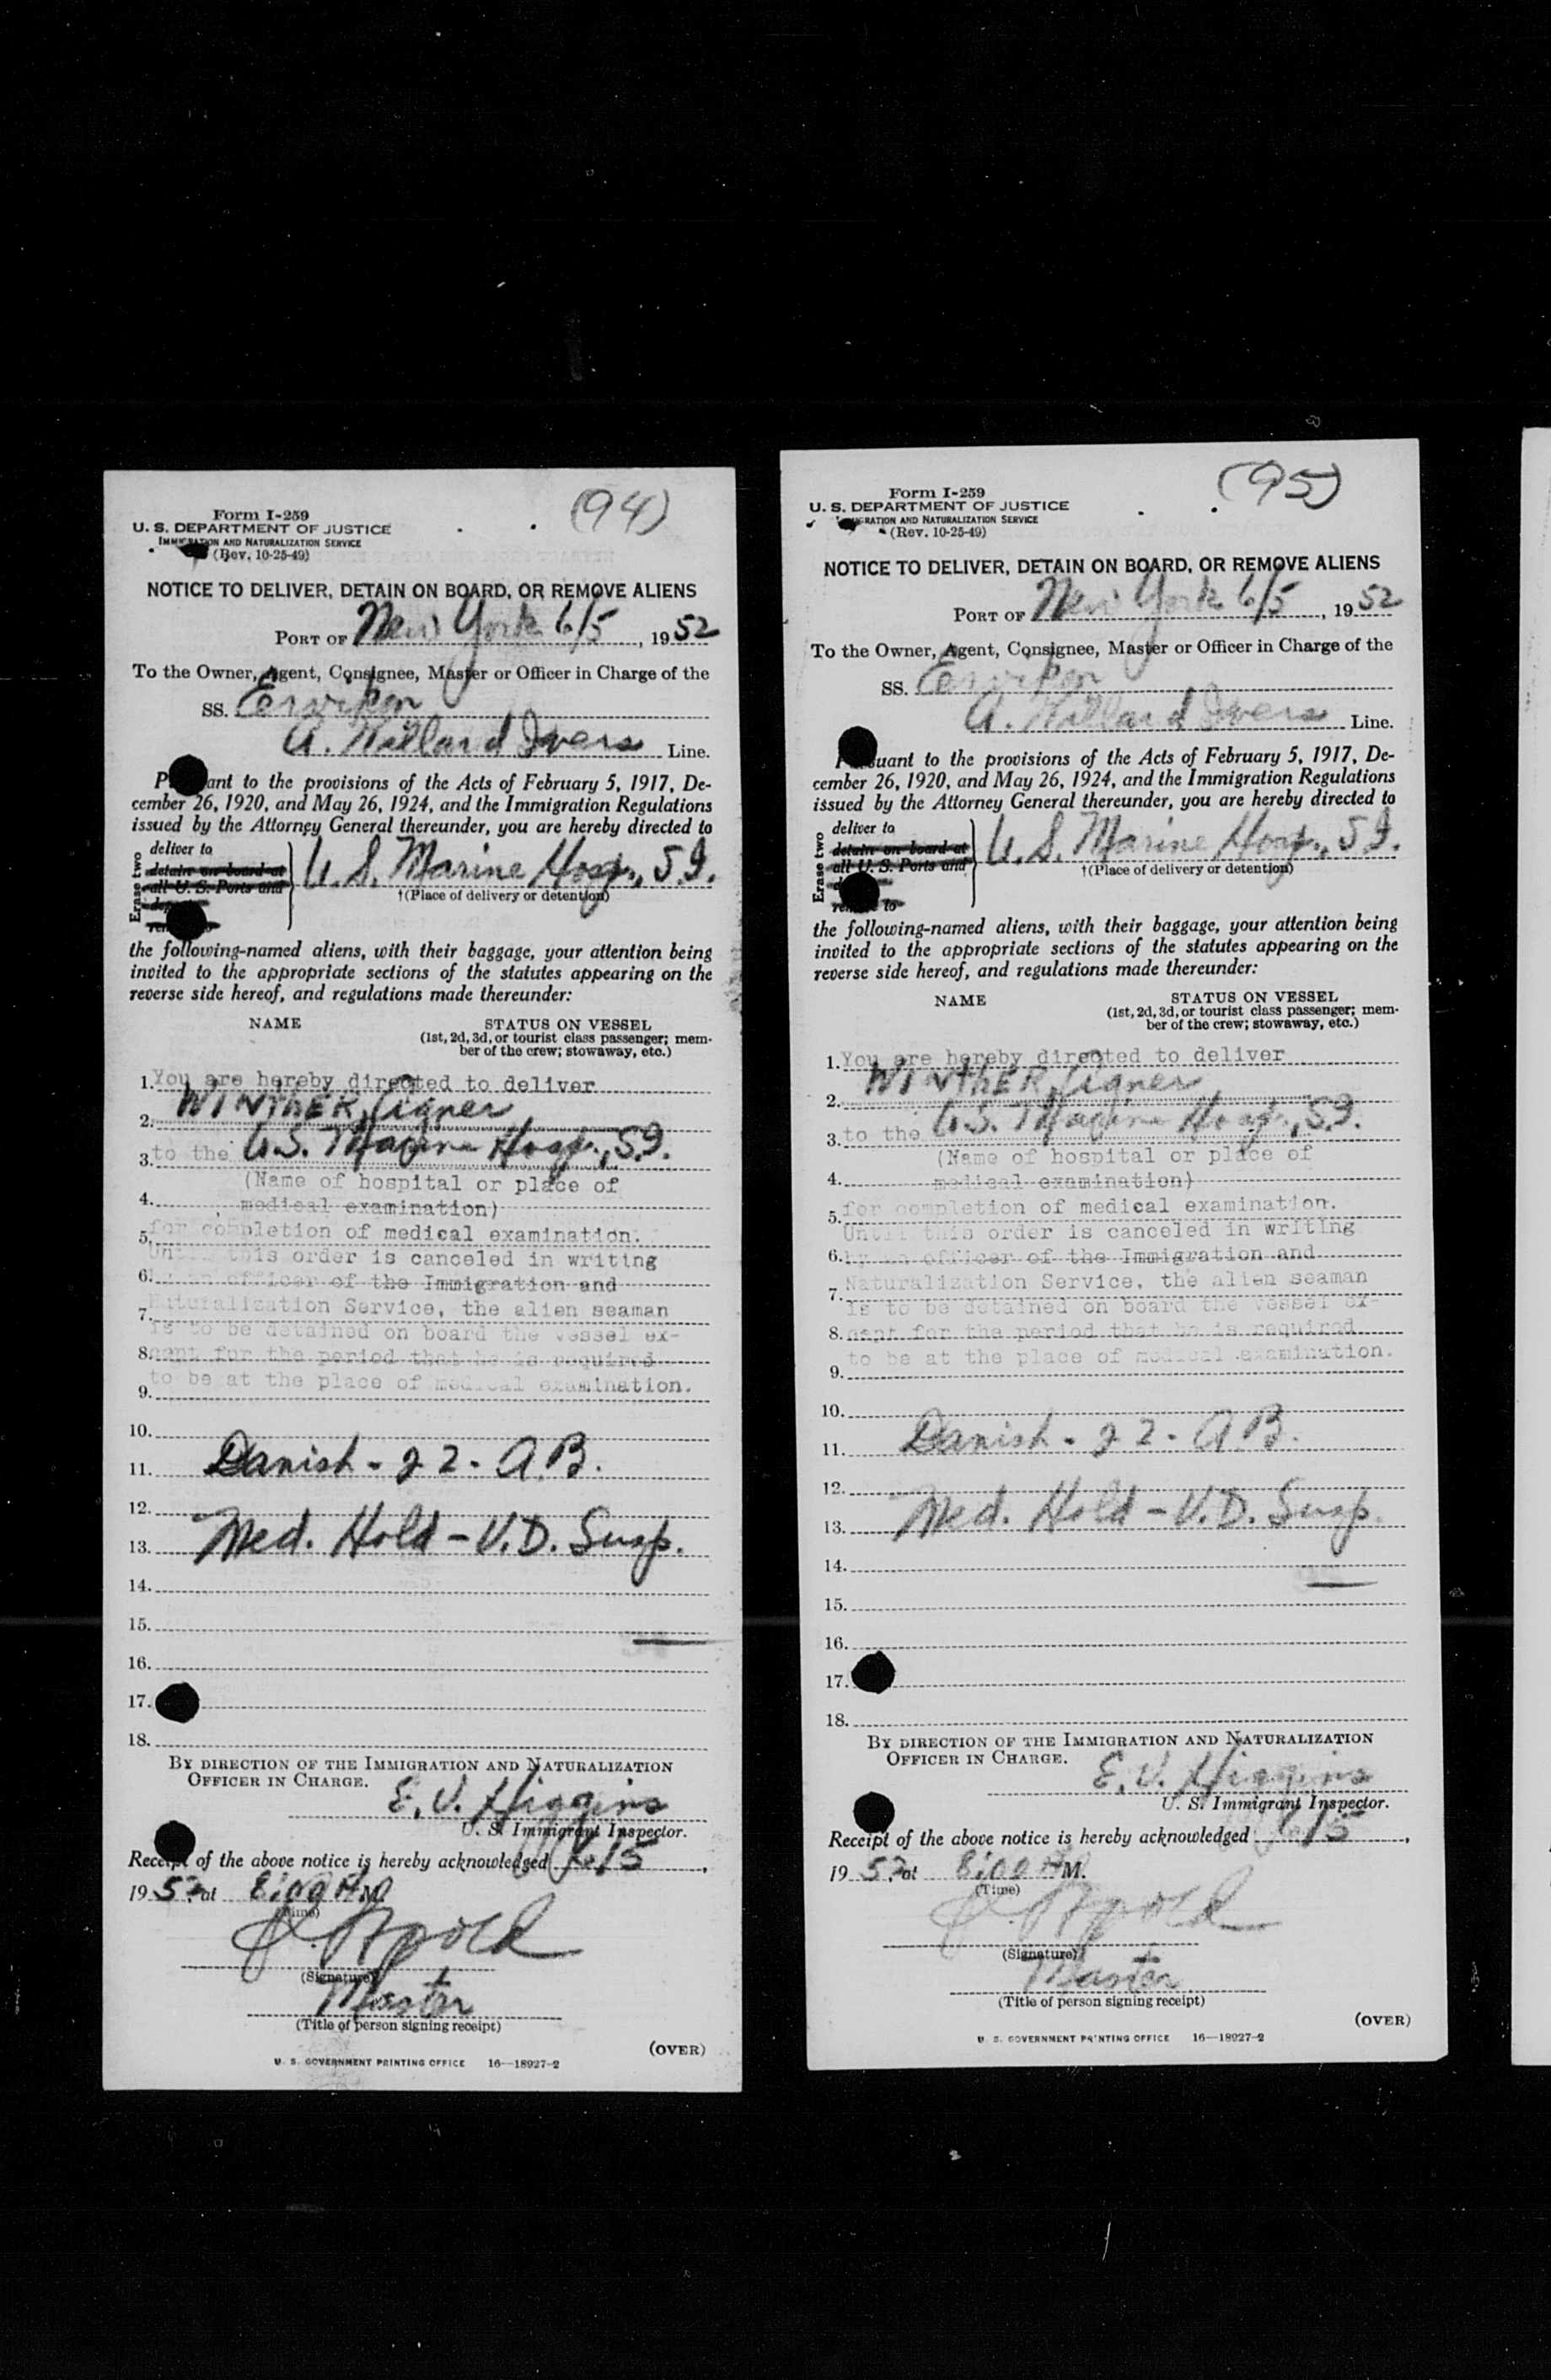 (94)
Form I-259
U. S. DEPARTMENT OF JUSTICE
IMMIGRATION AND NATURALIZATION SERVICE
(Rev. 10-25-49)
NOTICE TO DELIVER, DETAIN ON BOARD, OR REMOVE ALIENS
PORT OF New York 6/5, 1952
To the Owner, Agent, Consignee, Master or Officer in Charge of the
SS.
A. Willard Ivers Line.
Pursuant to the provisions of the Acts of February 5, 1917, De-
cember 26, 1920, and May 26, 1924, and the Immigration Regulations
issued by the Attorney General thereunder, you are hereby directed to
Erase two
deliver to
detain on board at
all U. S. Ports and
U. S. Marine Hosp., S.I.
†(Place of delivery or detention)
the following-named aliens, with their baggage, your attention being
invited to the appropriate sections of the statutes appearing on the
reverse side hereof, and regulations made thereunder:
NAME STATUS ON VESSEL
(1st, 2d, 3d, or tourist class passenger; mem-
ber of the crew; stowaway, etc.)
1. You are hereby directed to deliver
2. WINTHER, Aigner
3. to the U.S. Marine Hosp., S.I.
(Name of hospital or place of
4. medical examination)
5. for completion of medical examination.
Until this order is canceled in writing
6. by an officer of the Immigration and
7. Naturalization Service, the alien seaman
is to be detained on board the vessel ex-
8. cept for the period that he is required
to be at the place of medical examination.
9.
10.
11. Danish - 22 - A.B.
12.
13. Med. Hold - V.D. Susp.
14.
15.
16.
17.
18.
BY DIRECTION OF THE IMMIGRATION AND NATURALIZATION
OFFICER IN CHARGE.
E. V. Higgins
U. S. Immigrant Inspector.
Receipt of the above notice is hereby acknowledged 6/5,
1952, at 8:00 AM.
(Time)
(Signature)
Master
(Title of person signing receipt)
(OVER)
U. S. GOVERNMENT PRINTING OFFICE 16—18927-2
(95)
Form I-259
U. S. DEPARTMENT OF JUSTICE
IMMIGRATION AND NATURALIZATION SERVICE
(Rev. 10-25-49)
NOTICE TO DELIVER, DETAIN ON BOARD, OR REMOVE ALIENS
PORT OF New York 6/5, 1952
To the Owner, Agent, Consignee, Master or Officer in Charge of the
SS.
A. Willard Ivers Line.
Pursuant to the provisions of the Acts of February 5, 1917, De-
cember 26, 1920, and May 26, 1924, and the Immigration Regulations
issued by the Attorney General thereunder, you are hereby directed to
Erase two
deliver to
detain on board at
all U. S. Ports and
U. S. Marine Hosp., S.I.
†(Place of delivery or detention)
the following-named aliens, with their baggage, your attention being
invited to the appropriate sections of the statutes appearing on the
reverse side hereof, and regulations made thereunder:
NAME STATUS ON VESSEL
(1st, 2d, 3d, or tourist class passenger; mem-
ber of the crew; stowaway, etc.)
1. You are hereby directed to deliver
2. WINTHER, Aigner
3. to the U.S. Marine Hosp., S.I.
(Name of hospital or place of
4. medical examination)
5. for completion of medical examination.
Until this order is canceled in writing
6. by an officer of the Immigration and
7. Naturalization Service, the alien seaman
is to be detained on board the vessel ex-
8. cept for the period that he is required
to be at the place of medical examination.
9.
10.
11. Danish - 22 - A.B.
12.
13. Med. Hold - V.D. Susp.
14.
15.
16.
17.
18.
BY DIRECTION OF THE IMMIGRATION AND NATURALIZATION
OFFICER IN CHARGE.
E. V. Higgins
U. S. Immigrant Inspector.
Receipt of the above notice is hereby acknowledged 6/5,
1952, at 8:00 AM.
(Time)
(Signature)
Master
(Title of person signing receipt)
(OVER)
U. S. GOVERNMENT PRINTING OFFICE 16—18927-2